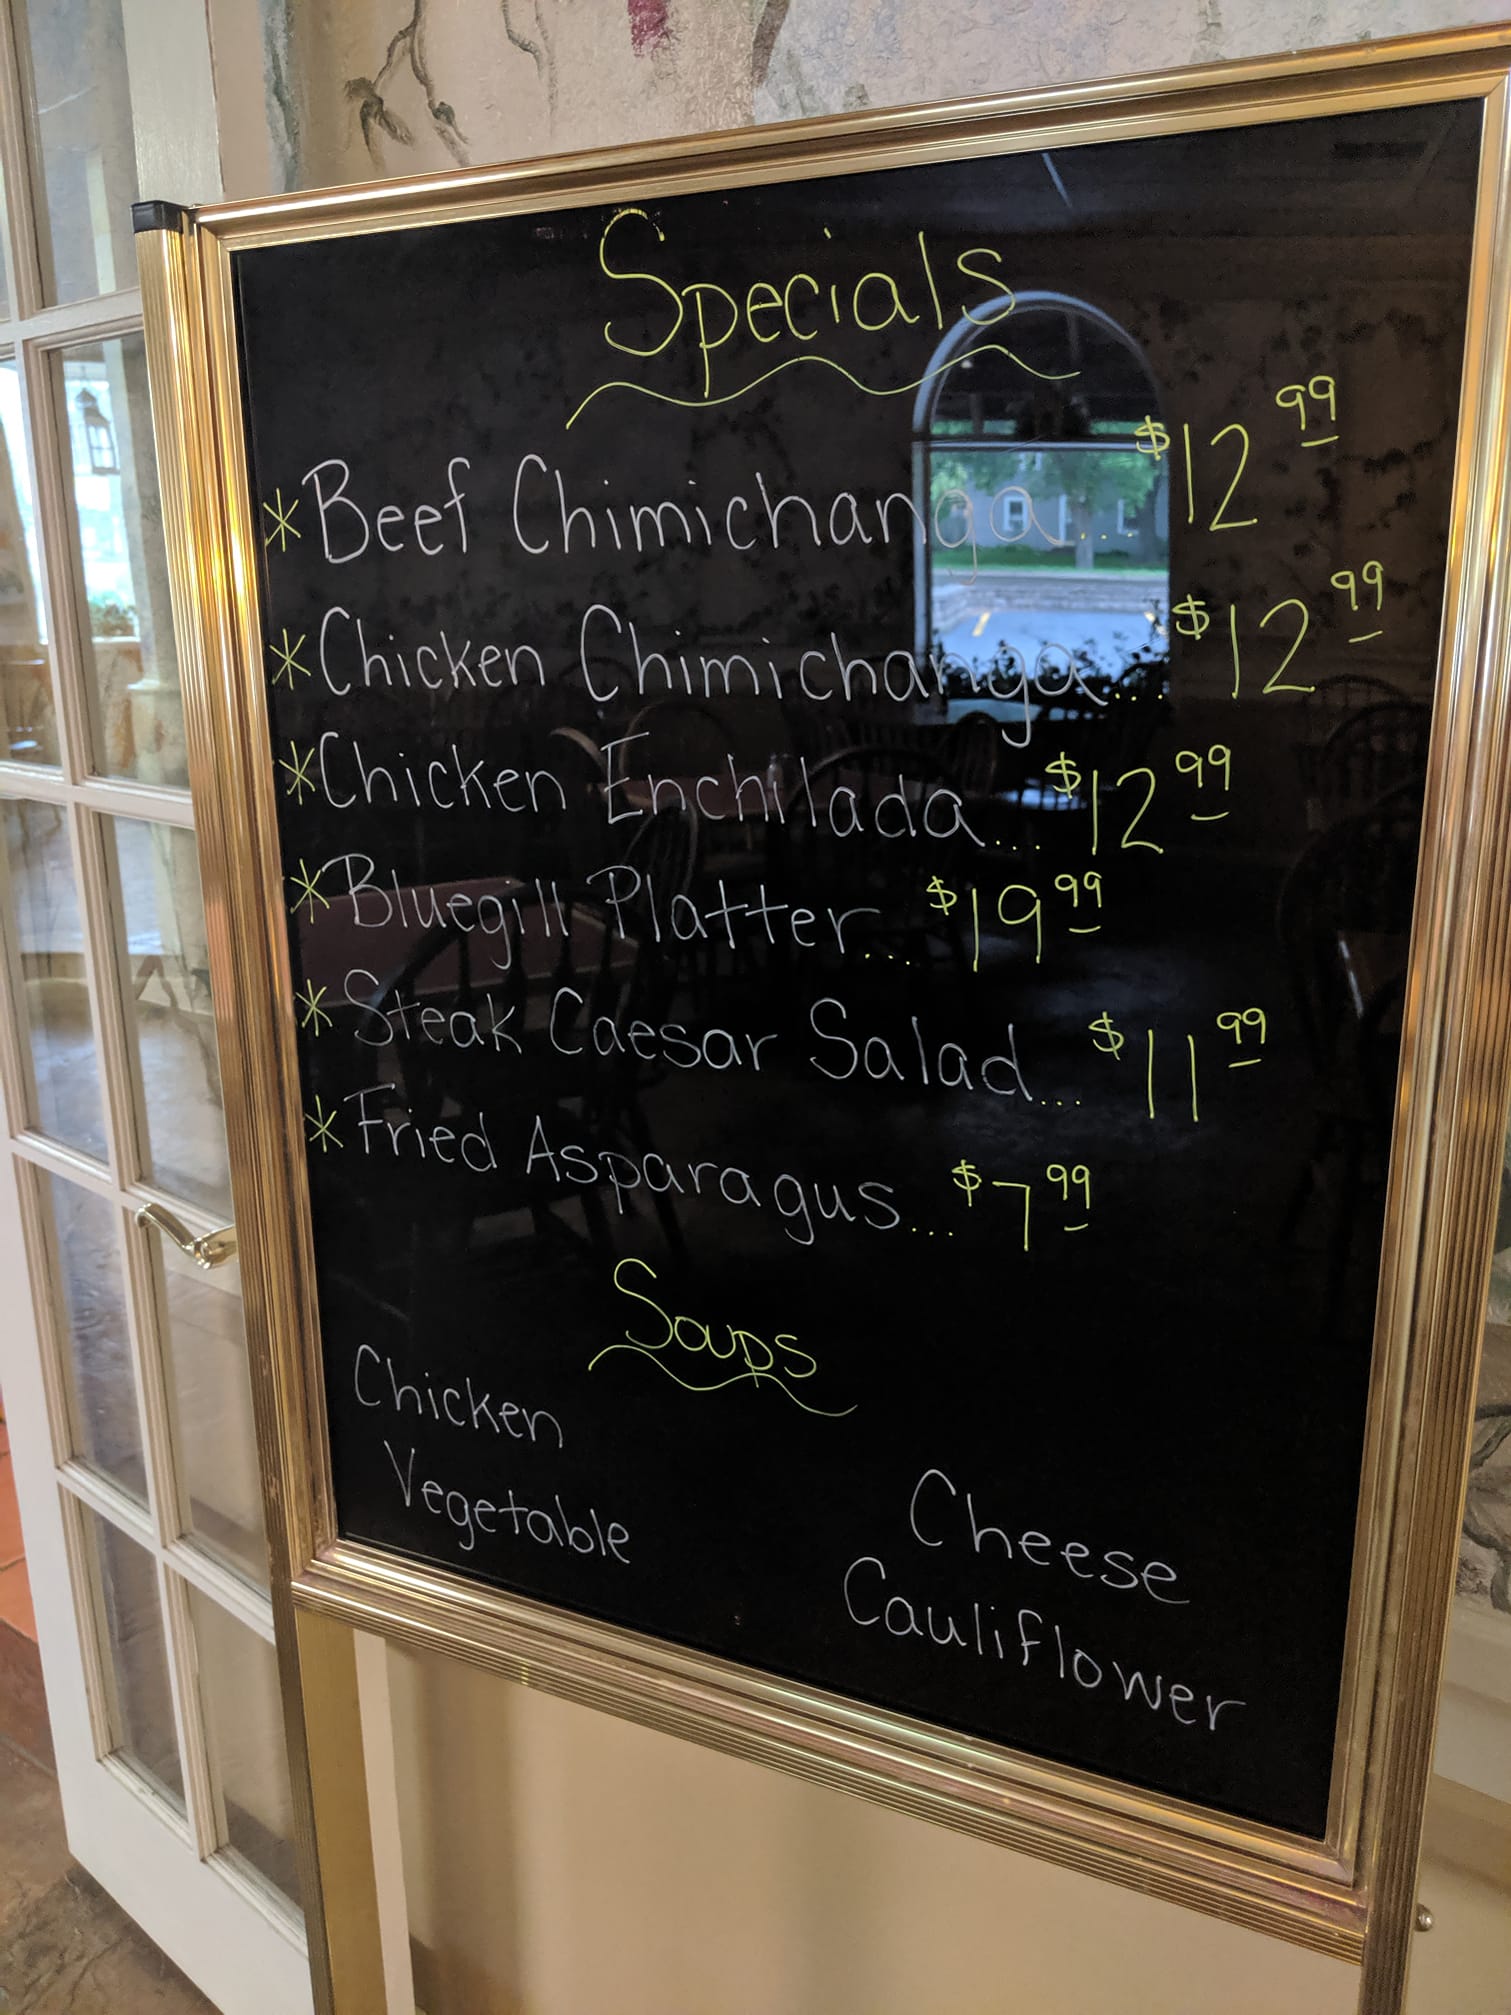 Specials
*Beef Chimichanga.... $12 99
*Chicken Chimichanga... $12 99
*Chicken Enchilada.... $12 99
*Bluegill Platter.... $19 99
*Steak Caesar Salad... $11 99
*Fried Asparagus... $7 99
Soups
Chicken
Vegetable
Cheese
Cauliflower